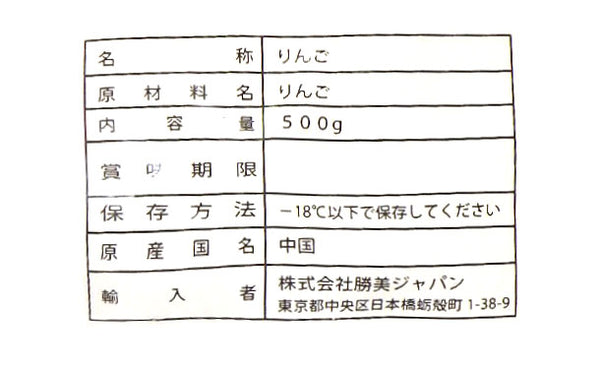 名称 りんご
原材料名 りんご
内容量 500g
賞味期限
保存方法 －18℃以下で保存してください
原産国名 中国
輸入者 株式会社勝美ジャパン
東京都中央区日本橋蛎殻町1-38-9